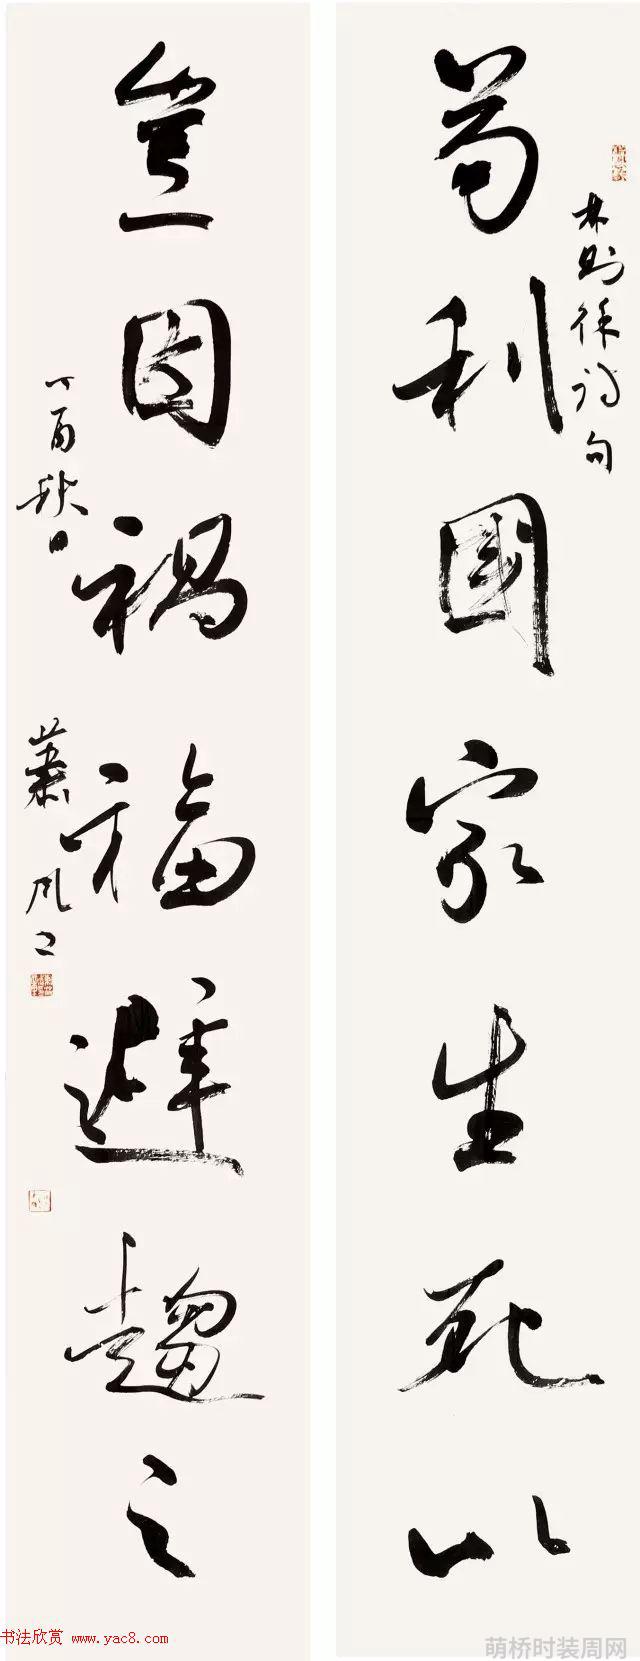 林则徐诗句
苟利國家生死以
豈因祸福避趨之
丁酉秋日
慕風书
书法欣赏 www.yac8.com
萌桥时装周网